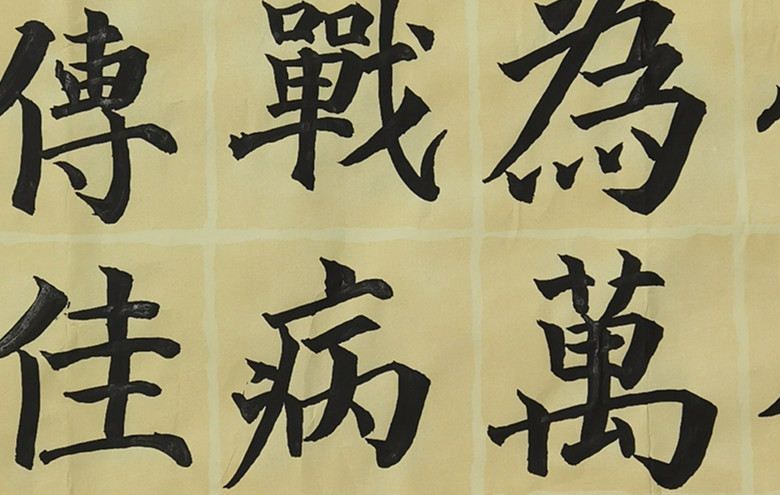 為萬
戰病
傳佳